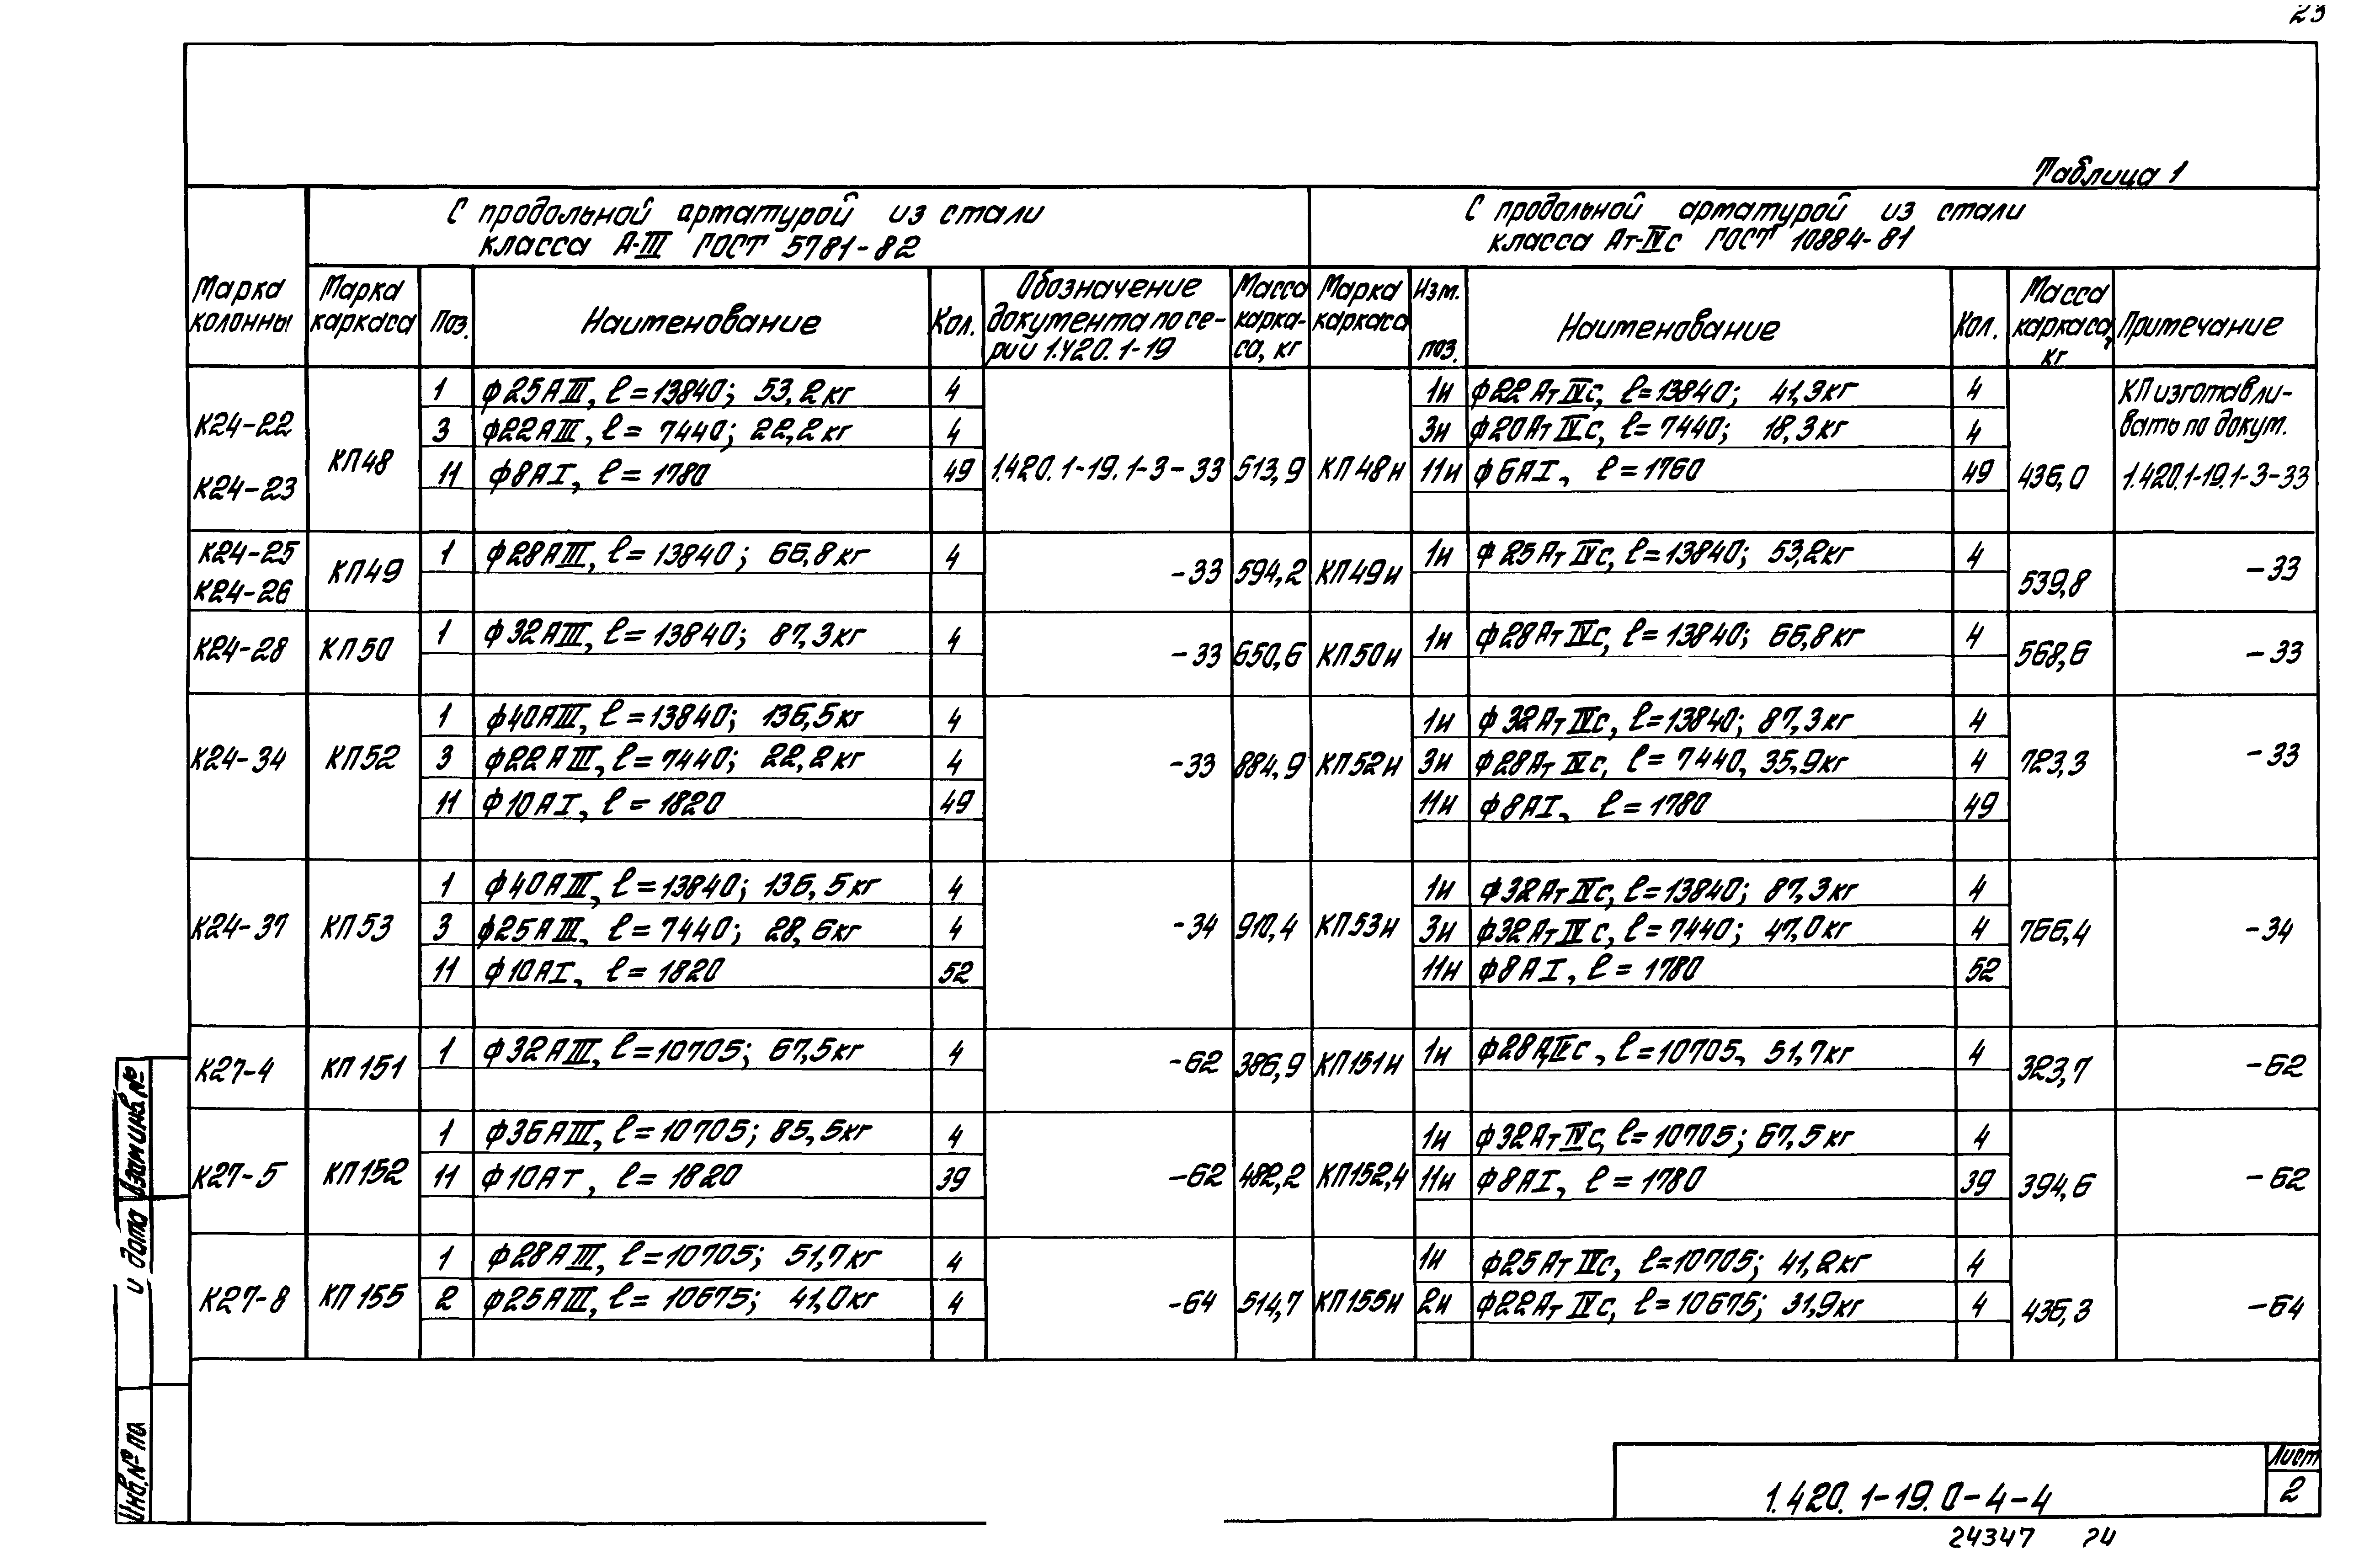 23
Таблица 1
С продольной арматурой из стали
класса А-III ГОСТ 5781-82
С продольной арматурой из стали
класса Ат-IVс ГОСТ 10884-81
Марка колонны
Марка каркаса
Поз.
Наименование
Кол.
Обозначение документа по се-
рии 1.420.1-19
Масса карка-
са, кг
Марка каркаса
Изм. поз.
Наименование
Кол.
Масса каркаса, кг
Примечание
К24-22
К24-23
КП48
1 ф25АIII, ℓ=13840; 53,2кг 4
3 ф22АIII, ℓ= 7440; 22,2кг 4
11 ф8АI, ℓ= 1780 49
1.420.1-19.1-3-33 513,9 КП48и
1и ф22АтIVс, ℓ=13840; 41,3кг 4
3и ф20АтIVс, ℓ=7440; 18,3кг 4
11и ф6АI, ℓ=1760 49
436,0
КП изготавли-
вать по докум.
1.420.1-19.1-3-33
К24-25
К24-26
КП49
1 ф28АIII, ℓ=13840; 66,8кг 4
-33 594,2 КП49и
1и ф25АтIVс, ℓ=13840; 53,2кг 4
539,8 -33
К24-28 КП50
1 ф32АIII, ℓ=13840; 87,3кг 4
-33 650,6 КП50и
1и ф28АтIVс, ℓ=13840; 66,8кг 4
568,6 -33
К24-34 КП52
1 ф40АIII, ℓ=13840; 136,5кг 4
3 ф22АIII, ℓ=7440; 22,2кг 4
11 ф10АI, ℓ=1820 49
-33 884,9 КП52и
1и ф32АтIVс, ℓ=13840; 87,3кг 4
3и ф28АтIVс, ℓ=7440, 35,9кг 4
11и ф8АI, ℓ=1780 49
723,3 -33
К24-37 КП53
1 ф40АIII, ℓ=13840; 136,5кг 4
3 ф25АIII, ℓ=7440; 28,6кг 4
11 ф10АI, ℓ=1820 52
-34 910,4 КП53и
1и ф32АтIVс, ℓ=13840; 87,3кг 4
3и ф32АтIVс, ℓ=7440; 47,0кг 4
11и ф8АI, ℓ=1780 52
766,4 -34
К27-4 КП151
1 ф32АIII, ℓ=10705; 67,5кг 4
-62 386,9 КП151и
1и ф28АтIVс, ℓ=10705, 51,7кг 4
323,7 -62
К27-5 КП152
1 ф36АIII, ℓ=10705; 85,5кг 4
11 ф10Ат, ℓ=1820 39
-62 482,2 КП152,4
1и ф32АтIVс, ℓ=10705; 67,5кг 4
11и ф8АI, ℓ=1780 39
394,6 -62
К27-8 КП155
1 ф28АIII, ℓ=10705; 51,7кг 4
2 ф25АIII, ℓ=10675; 41,0кг 4
-64 514,7 КП155и
1и ф25АтIVс, ℓ=10705; 41,2кг 4
2и ф22АтIVс, ℓ=10675; 31,9кг 4
436,3 -64
Взам инв. №
и дата
Инв. № по
1.420.1-19.0-4-4
Лист
2
24347 24